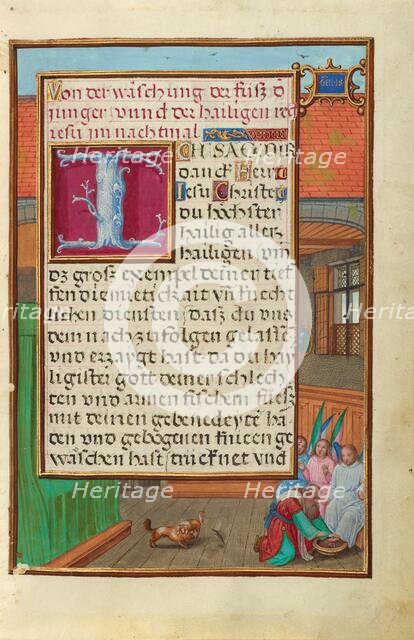 Von der wäschung der füsz d
iunger vund der hailigen red
iesu im nachtmal
GEN·18
ICH SAG DIR
danck Herr
Iesu Christe
du höchster
hailig aller
hailigen vm
dz groß exempel deiner tief
fen diemietickait vn knecht
lichen diensten, dasz du vns
dem nach zů folgen gelassē
vnd erzaygt hast da du hay
ligister gott deiner schlech
ten vnd armen fischern füesz
mit deinen gebenedeytē hä
den vnd gebogenen knieen ge
wäschen hast, trücknet vnd
Heritage
Heritage
Heritage
Heritage
Heritage
Heritage
Heritage
Heritage